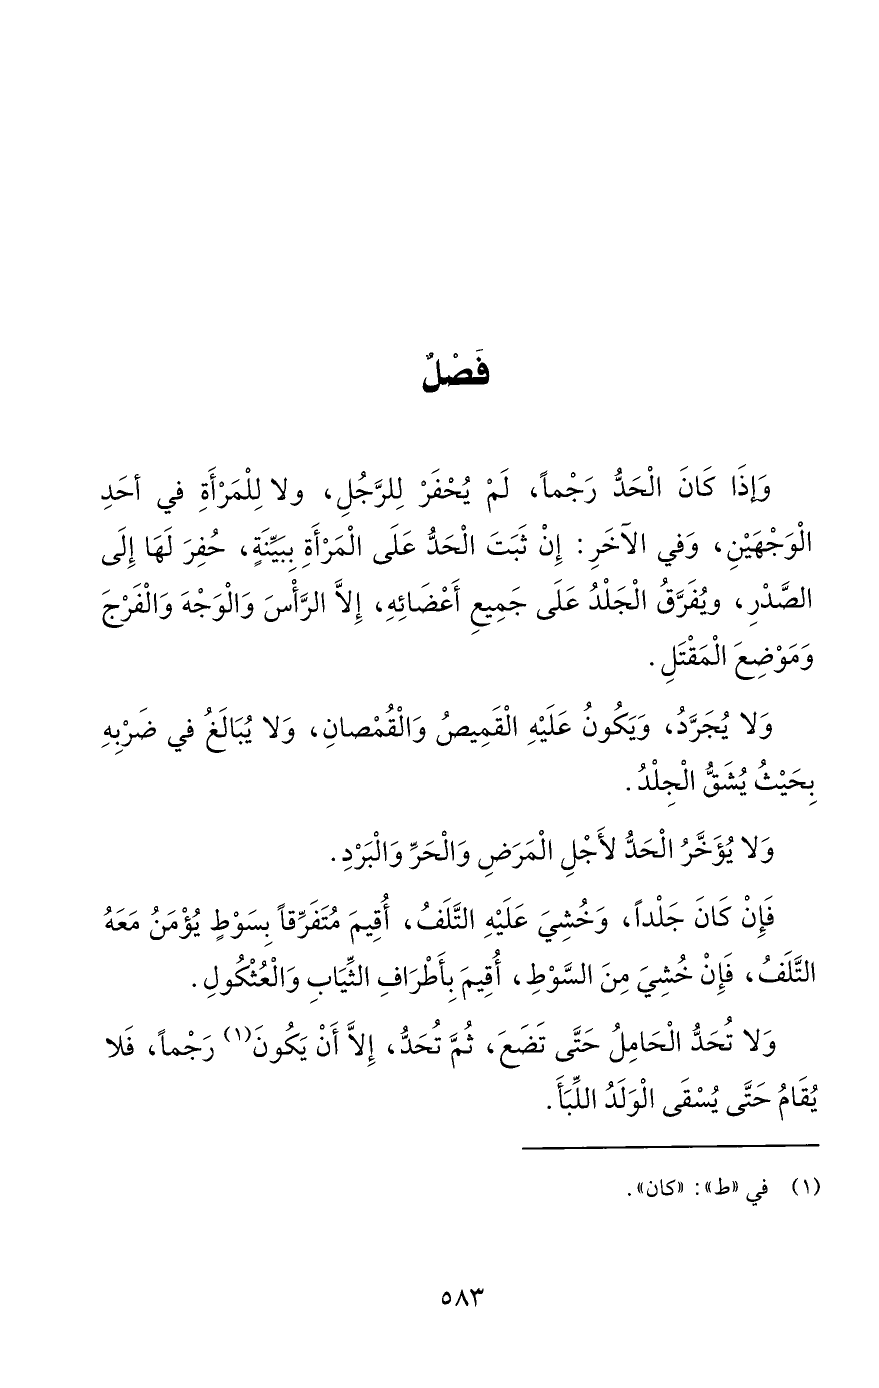 فَصْلٌ
وَإِذَا كَانَ الْحَدُّ رَجْماً، لَمْ يُحْفَرْ لِلرَّجُلِ، ولا لِلْمَرْأَةِ في أحَدِ
الْوَجْهَيْنِ، وَفي الآخَرِ: إِنْ ثَبَتَ الْحَدُّ عَلَى الْمَرْأَةِ بِبَيِّنَةٍ، حُفِرَ لَهَا إِلَى
الصَّدْرِ، ويُفَرَّقُ الْجَلْدُ عَلَى جَمِيعِ أَعْضَائِهِ، إِلاَّ الرَّأْسَ وَالْوَجْهَ وَالْفَرْجَ
وَمَوْضِعَ الْمَقْتَلِ.
وَلا يُجَرَّدُ، وَيَكُونُ عَلَيْهِ الْقَمِيصُ وَالْقُمْصانِ، وَلا يُبَالَغُ في ضَرْبِهِ
بِحَيْثُ يُشَقُّ الْجِلْدُ.
وَلا يُؤَخَّرُ الْحَدُّ لأَجْلِ الْمَرَضِ وَالْحَرِّ وَالْبَرْدِ.
فَإِنْ كَانَ جَلْداً، وَخُشِيَ عَلَيْهِ التَّلَفُ، أُقِيمَ مُتَفَرِّقاً بِسَوْطٍ يُؤْمَنُ مَعَهُ
التَّلَفُ، فَإِنْ خُشِيَ مِنَ السَّوْطِ، أُقِيمَ بِأَطْرَافِ الثِّيَابِ وَالْعُثْكُولِ.
وَلا تُحَدُّ الْحَامِلُ حَتَّى تَضَعَ، ثُمَّ تُحَدُّ، إِلاَّ أَنْ يَكُونَ(١) رَجْماً، فَلا
يُقَامُ حَتَّى يُسْقَى الْوَلَدُ اللِّبَأَ.
(١) في «ط»: «كان».
٥٨٣